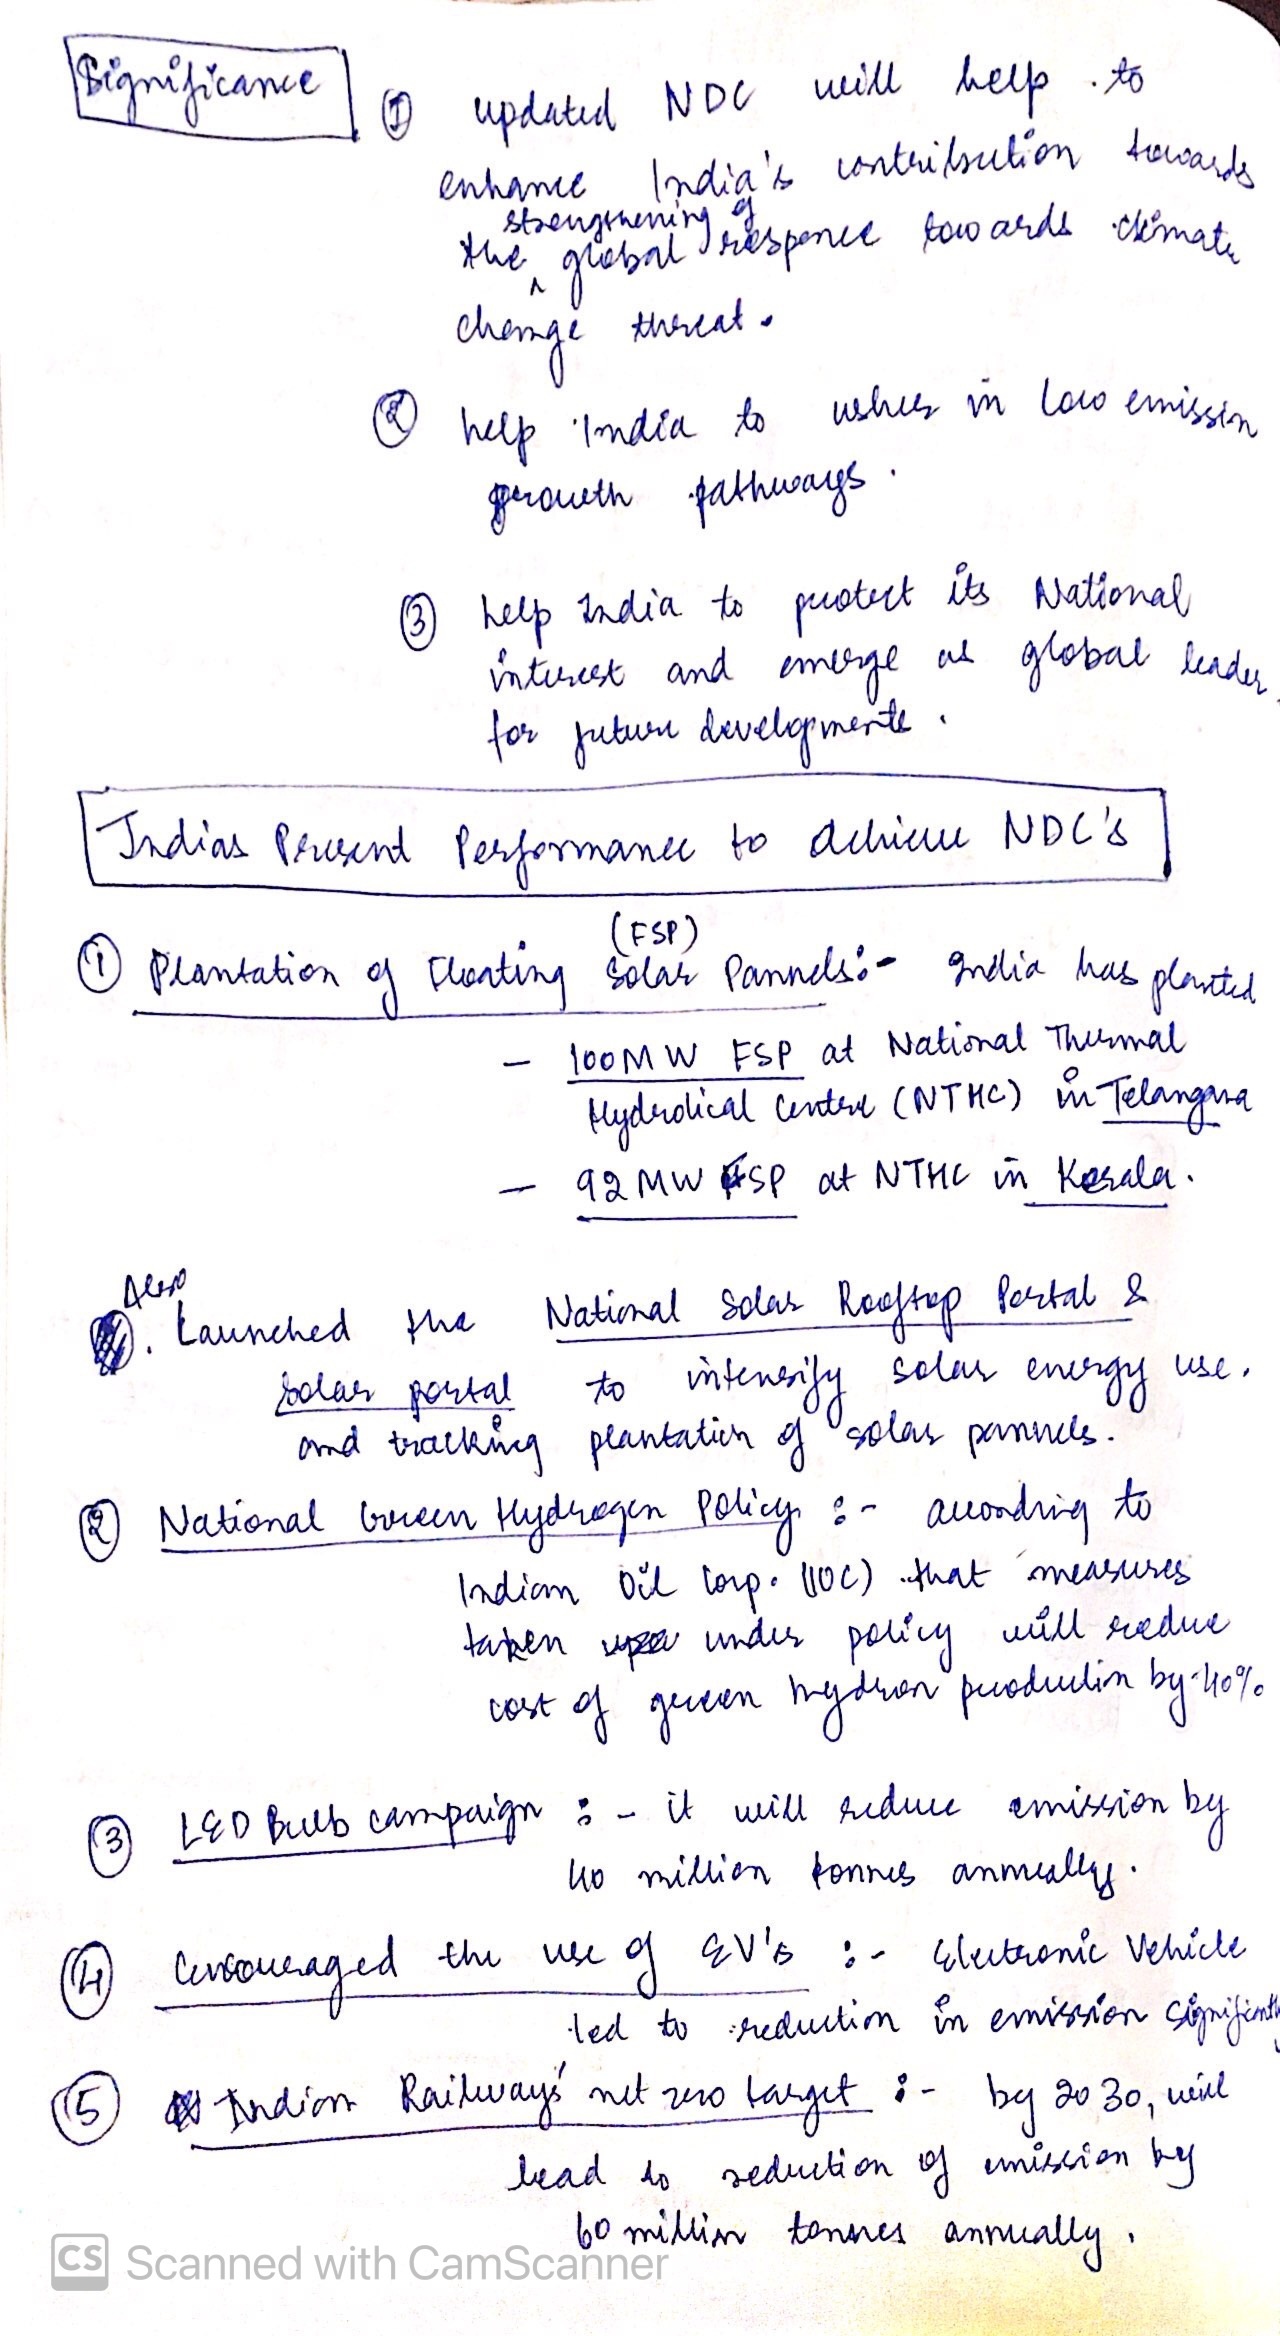 Significance
① updated NDC will help to
enhance India's contribution towards
strengthening of
the global response towards climate
change threat.
② help India to usher in low emission
growth pathways.
③ help India to protect its National
interest and emerge as global leader
for future developments.
Indias Present Performance to achieve NDC's
(FSP)
① Plantation of Floating Solar Pannels:- India has planted
- 100MW FSP at National Thermal
Hyderolical Centre (NTHC) in Telangana
- 92 MW FSP at NTHC in Kerala.
Also
. Launched the National Solar Rooftop Portal &
Solar portal to intensify solar energy use.
and tracking plantation of solar pannels.
② National Green Hydrogen Policy :- according to
Indian Oil Corp. (IOC) that measures
taken under policy will reduce
cost of green hydron production by 40%
③ LED Bulb campaign :- it will reduce emission by
40 million tonnes annually.
④ Encouraged the use of EV's :- Electronic Vehicle
led to reduction in emission significantly
⑤ Indian Railways' net zero target :- by 2030, will
lead to reduction of emission by
60 million tonnes annually.
CS Scanned with CamScanner